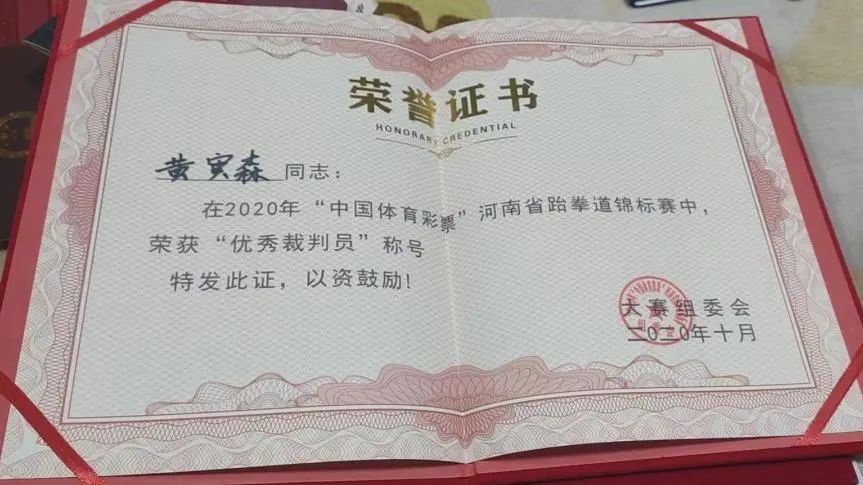 荣誉证书
HONORARY CREDENTIAL
黄寅森 同志：
在2020年“中国体育彩票”河南省跆拳道锦标赛中，
荣获“优秀裁判员”称号
特发此证，以资鼓励！
大赛组委会
二〇二〇年十月